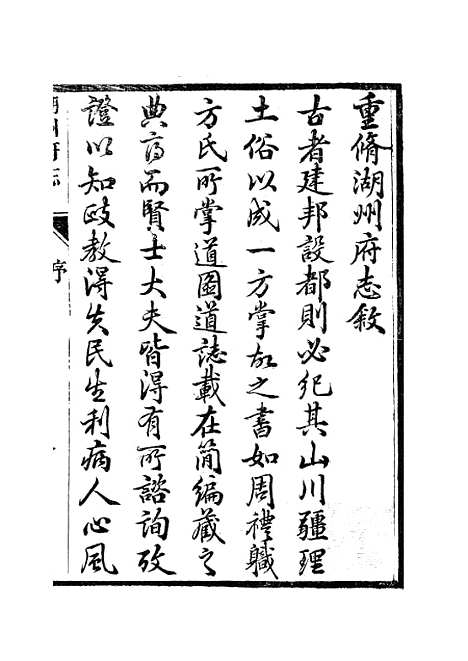 重脩湖州府志敘
古者建邦設都則必紀其山川疆理
土俗以成一方掌故之書如周禮職
方氏所掌道圖道誌載在簡編藏之
典府而賢士大夫皆得有所諮詢攷
證以知政教得失民生利病人心風
湖州府志
序